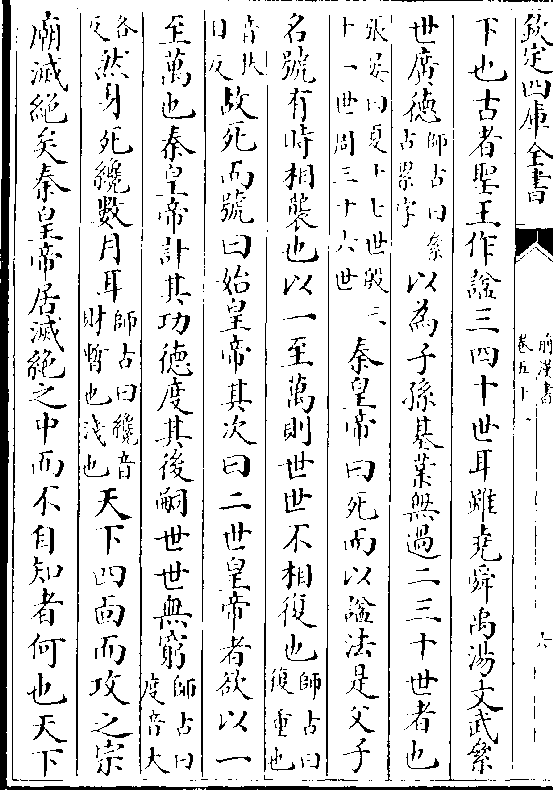 欽定四庫全書
前漢書
卷五十一
六
下也古者聖王作諡三四十世耳雖堯舜禹湯文武絫
世廣德師古曰絫古累字以為子孫基業無過二三十世者也
張晏曰夏十七世殷三十一世周三十六世秦皇帝曰死而以諡法是父子
名號有時相襲也以一至萬則世世不相復也師古曰復重也
音扶目反故死而號曰始皇帝其次曰二世皇帝者欲以一
至萬也秦皇帝計其功德度其後嗣世世無窮師古曰度音大
各反然身死纔數月耳師古曰纔音財暫也淺也天下四面而攻之宗
廟滅絕矣秦皇帝居滅絕之中而不自知者何也天下